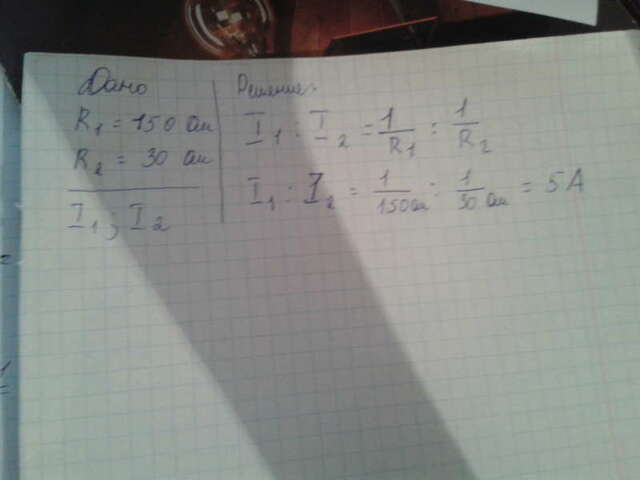 Дано
R₁ = 150 Ом
R₂ = 30 Ом
I₁ ; I₂
Решение:
I₁ : I₂ = 1/R₁ : 1/R₂
I₁ : I₂ = 1/150 Ом : 1/30 Ом = 5 А